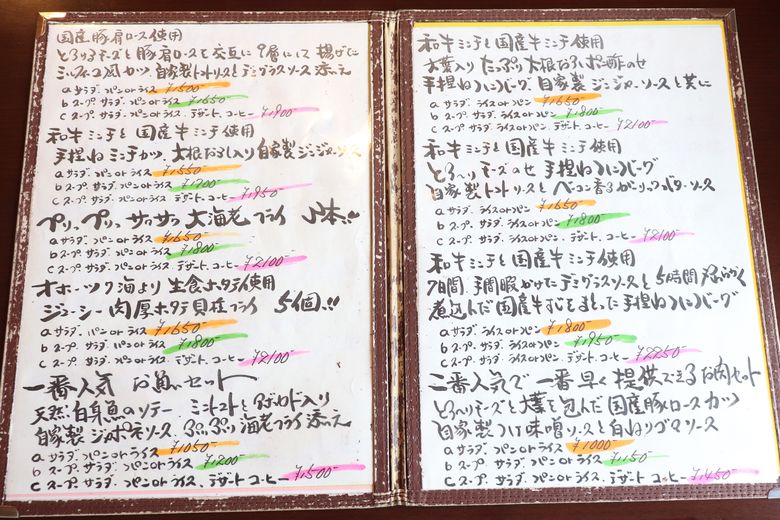 国産豚肩ロース使用
とろりチーズと豚肩ロースを交互に9層にして揚げた
ミルフィーユ風カツ 自家製トマトソースとデミグラスソース添え
a サラダ パン or ライス ¥1500-
b スープ サラダ パン or ライス ¥1650-
c スープ サラダ パン or ライス デザート、コーヒー ¥1900-
和牛ミンチと国産牛ミンチ使用
手捏ねミンチカツ、大根おろし入り自家製ジンジャーソース
a サラダ パン or ライス ¥1550-
b スープ サラダ パン or ライス ¥1700-
c スープ サラダ パン or ライス デザート、コーヒー ¥1950-
プリップリッ サクサク 大海老フライ 2本!!
a サラダ パン or ライス ¥1650-
b スープ サラダ パン or ライス ¥1800-
c スープ サラダ パン or ライス デザート、コーヒー ¥2100-
オホーツク海より 生食ホタテ使用
ジューシー肉厚ホタテ貝柱フライ 5個!!
a サラダ パン or ライス ¥1650-
b スープ サラダ パン or ライス ¥1800-
c スープ サラダ パン or ライス デザート コーヒー ¥2100-
一番人気 お魚セット
天然白身魚のソテー ミニトマトとアボカド入り
自家製ジャポネソース、ぷりぷり海老フライ添え
a サラダ パン or ライス ¥1050-
b スープ サラダ パン or ライス ¥1200-
c スープ サラダ、パン or ライス、デザート コーヒー ¥1500-
和牛ミンチと国産牛ミンチ使用
大葉入り たっぷり大根おろしポン酢のせ
手捏ねハンバーグ 自家製ジンジャーソースと共に
a サラダ ライス or パン ¥1650-
b スープ サラダ ライス or パン ¥1800-
c スープ サラダ ライス or パン、デザート コーヒー ¥2100-
和牛ミンチと国産牛ミンチ使用
とろ〜りチーズのせ 手捏ねハンバーグ
自家製トマトソースとベーコン香るガーリックバターソース
a サラダ ライス or パン ¥1650-
b スープ サラダ ライス or パン ¥1800-
c スープ サラダ ライス or パン、デザート、コーヒー ¥2100-
和牛ミンチと国産牛ミンチ使用
7日間、手間暇かけたデミグラスソースと5時間
煮込んだ国産牛すじをまとった手捏ねハンバーグ
a サラダ ライス or パン ¥1800-
b スープ サラダ ライス or パン ¥1950-
c スープ サラダ ライス or パン、デザート、コーヒー ¥2250-
二番人気で一番早く提供できるお肉セット
とろ〜りチーズと大葉を包んだ国産豚ロースカツ
自家製つけ味噌ソースと白ねりゴマソース
a サラダ パン or ライス ¥1000-
b スープ サラダ パン or ライス ¥1150-
c スープ サラダ パン or ライス、デザート、コーヒー ¥1450-